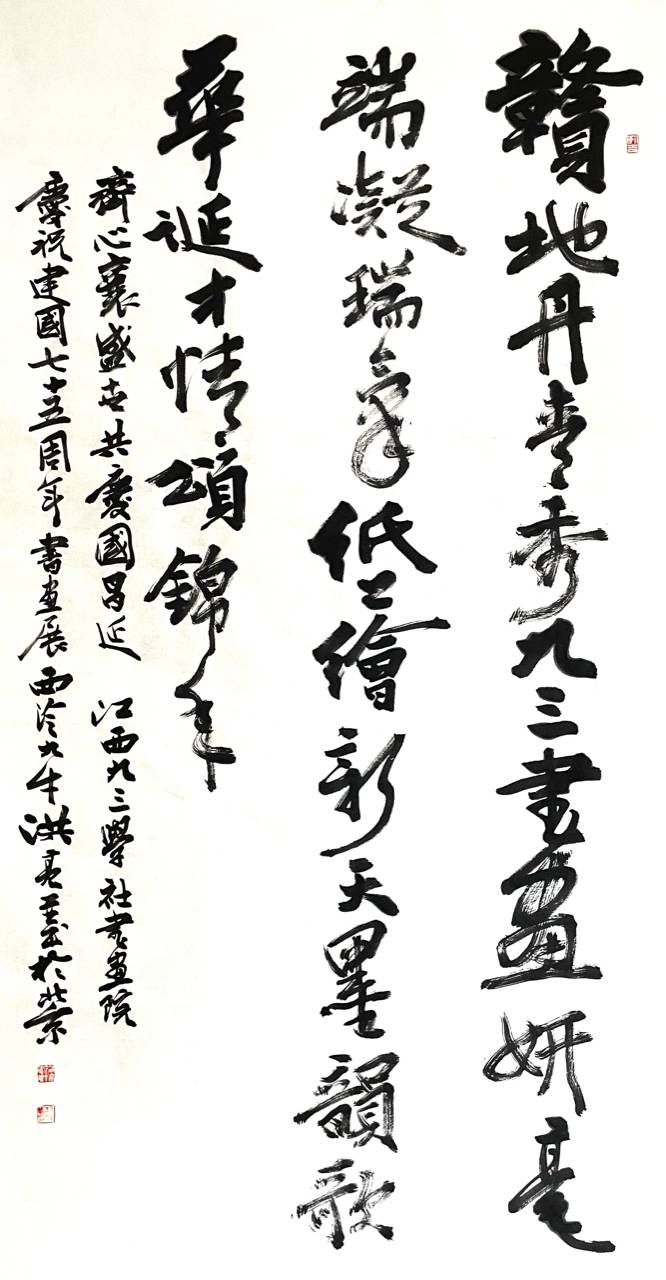 贛地丹青秀九三書畫妍毫
端凝瑞氣紙上繪新天墨韻歌
華誕才情頌錦年
齊心襄盛世共慶國昌延 江西九三學社書畫院
慶祝建國七十五周年書畫展 西泠九牛洪亮並書於北京